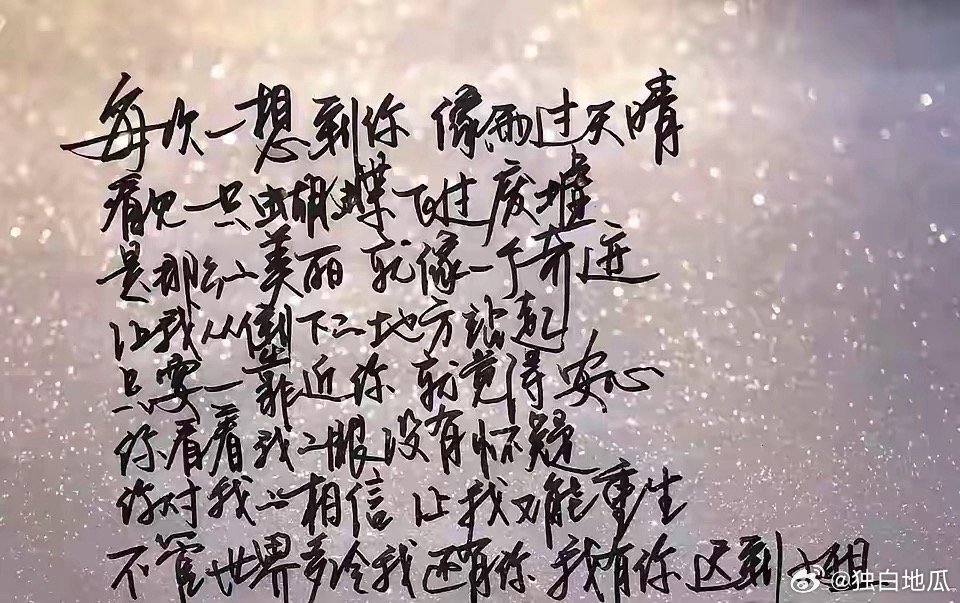 每次一想到你 像雨过天晴
看见一只蝴蝶飞过废墟
是那么美丽 就像一个奇迹
让我从倒下的地方站起
只要一靠近你 就觉得安心
你看着我的眼没有怀疑
你对我的相信 让我又能重生
不管世界多冷我还有你 我有你 迟到的
@独白地瓜